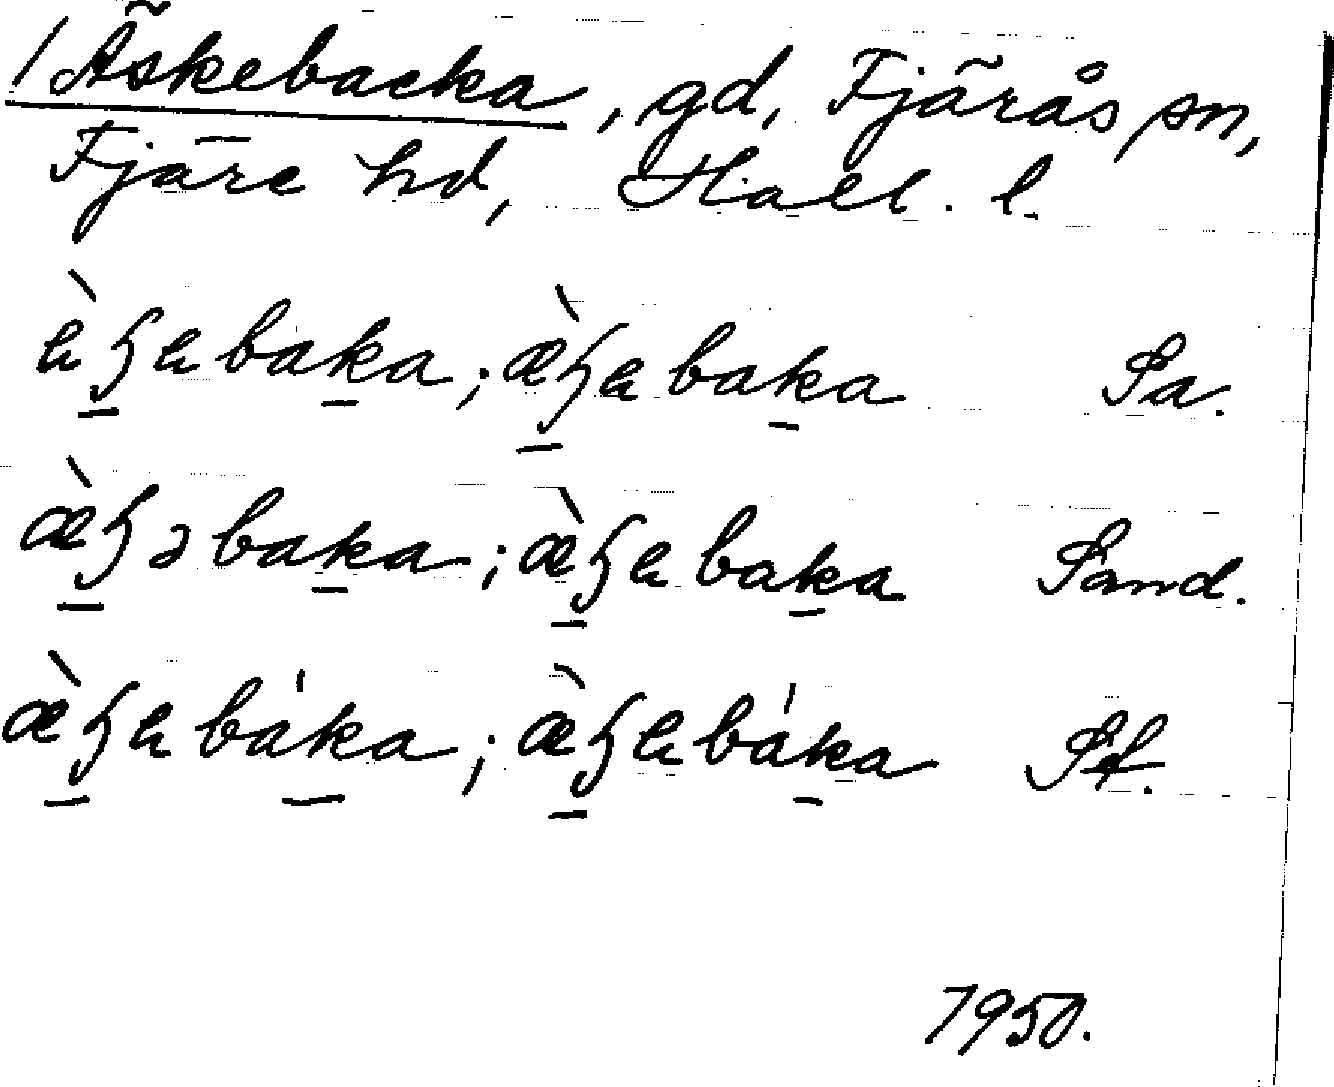 / Äskebacka, gd, Fjärås sn,
Fjäre hd, Hall. l.
ὲꜧebaka; æ̀ꜧebaka Sa.
æ̀ꜧəbaka; æ̀ꜧebaka Sand.
æ̀ꜧebáka; æ̀ꜧebáka Sf.
1950.